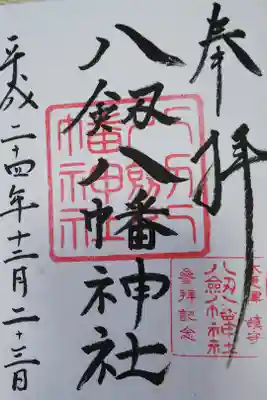 奉拝
八剱八幡神社
平成二十四年十二月二十三日
八剱八
幡神社
木更津 鎮守
八剱八幡神社
參拝記念